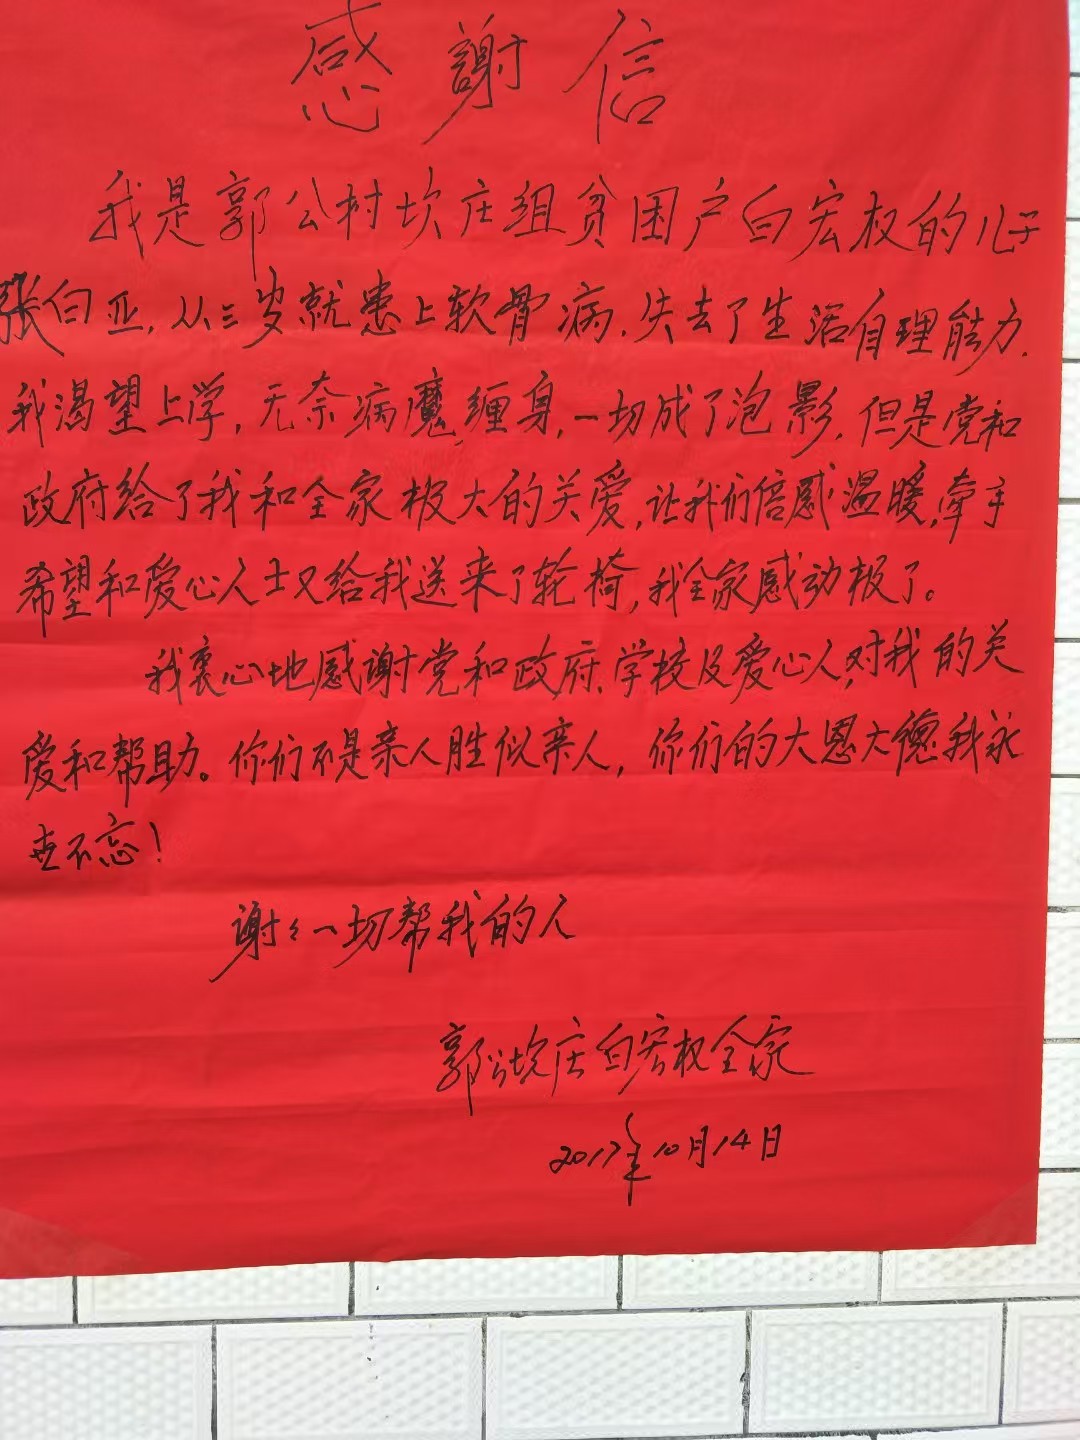 感謝信
我是郭公村坎庄组贫困户白宏权的儿子
張白亚,从三岁就患上软骨病.失去了生活自理能力.
我渴望上学,无奈病魔缠身,一切成了泡影.但是党和
政府给了我和全家极大的关爱,让我们倍感温暖,牵手
希望和爱心人士又给我送来了轮椅,我全家感动极了。
我衷心地感谢党和政府、学校及爱心人,对我的关
爱和帮助。你们不是亲人胜似亲人,你们的大恩大德我永
世不忘!
谢々一切帮我的人
郭公坎庄白宏权全家
2017年10月14日